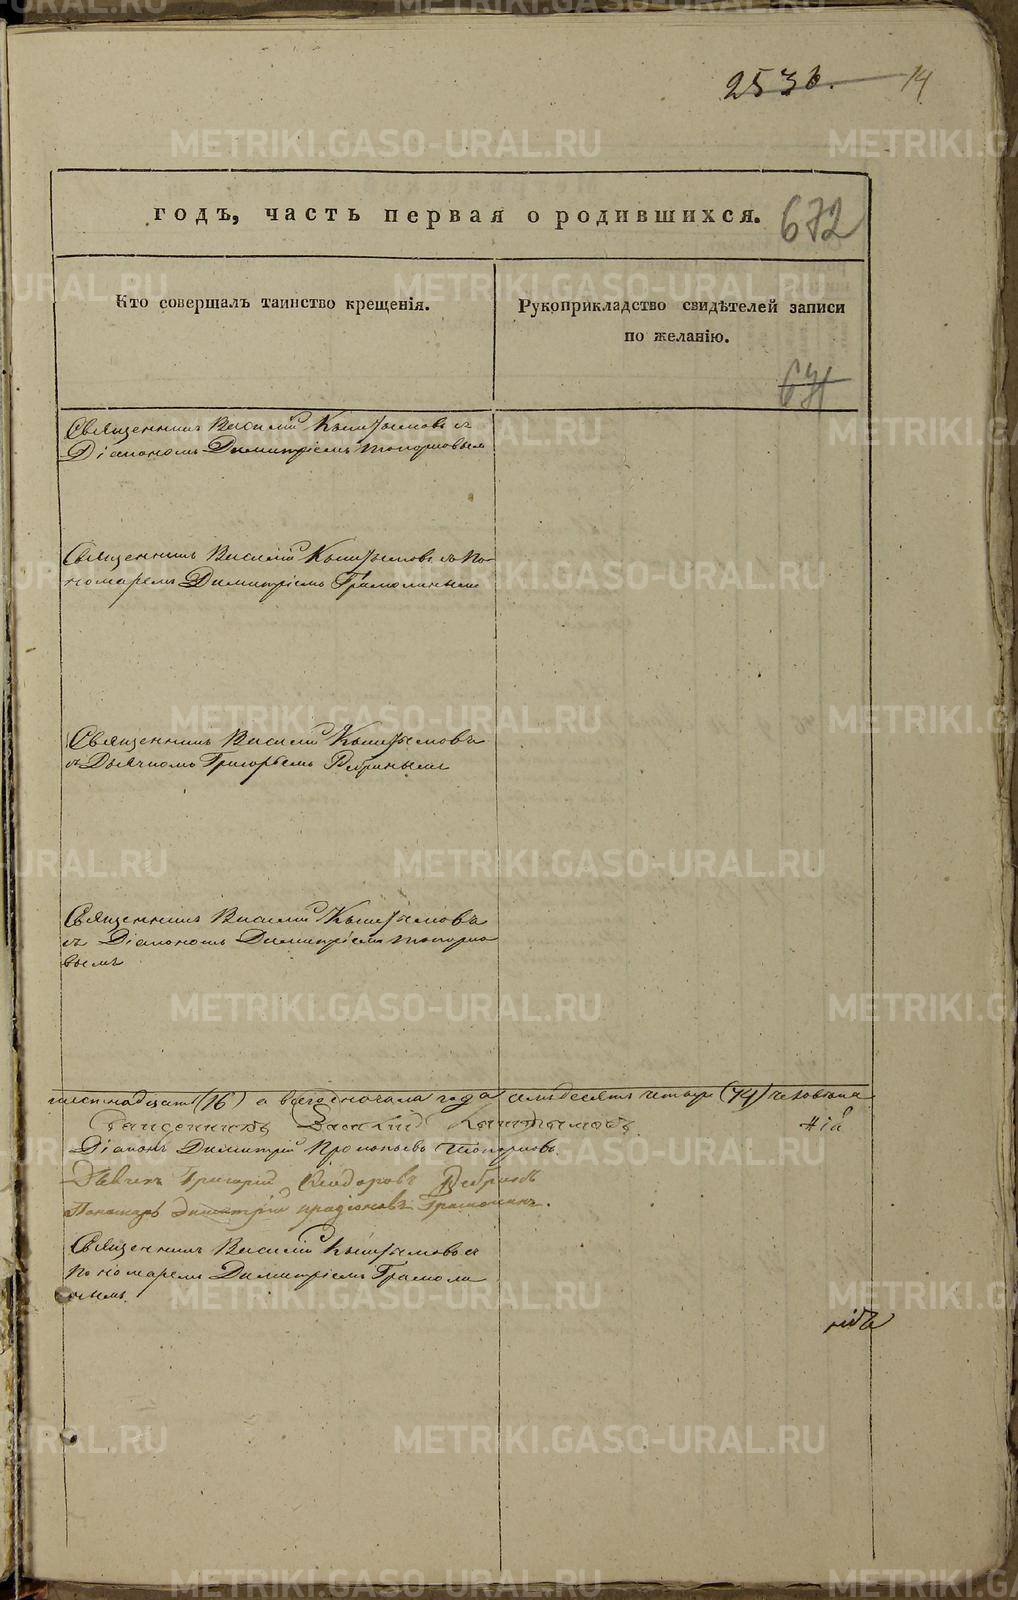 253 14
годъ, часть первая о родившихся. 672
Кто совершалъ таинство крещенія.
Рукоприкладство свидѣтелей записи
по желанію.
671
Священникъ Василій Кыштымовъ съ
Діакономъ Димитріемъ Топорковым
Священникъ Василій Кыштымовъ съ По-
номаремъ Димитріемъ Грамолиным
Священникъ Василій Кыштымовъ
съ Дьячкомъ Григорьемъ
Священникъ Василій Кыштымовъ
съ Діакономъ Димитріемъ Топорко
вымъ
шестнадцать (16) а всего сначала года семьдесятъ четыре (74) человѣка
Священникъ Василій Кыштымовъ
Діаконъ Димитрій Прокопьевъ Топорковъ
Дьячекъ Григорій
Пономарь Димитрій Грамолинъ.
Священникъ Василій Кыштымовъ съ
Пономаремъ Димитріемъ Грамоли
нымъ
METRIKI.GASO-URAL.RU